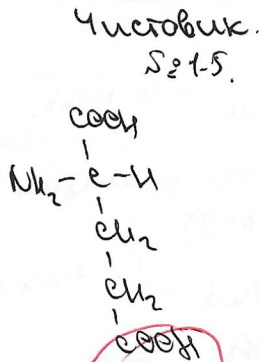 Чистовик.
№1-5.
COOH
NH₂ - C - H
CH₂
CH₂
COOH